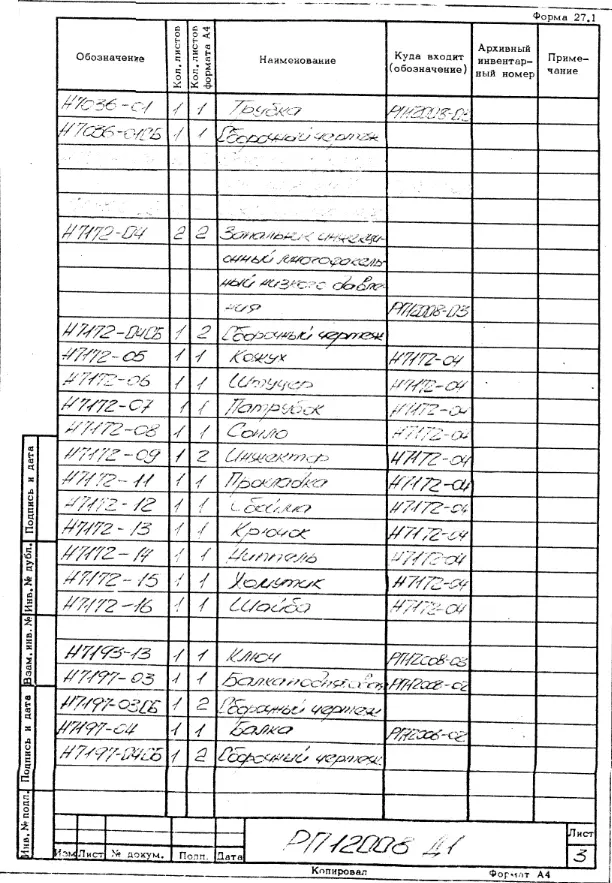 Форма 27.1
Обозначение Кол. листов Кол. листов формата А4 Наименование Куда входит (обозначение) Архивный инвентар-ный номер Приме-чание
Н7036-01 1 1 Трубка РП12008-03
Н7036-01СБ 1 1 Сборочный чертеж
Н7172-04 2 2 Запальник инжекци-
онный многофакель-
ный низкого давле-
ния РП12008-03
Н7172-04СБ 1 2 Сборочный чертеж
Н7172-05 1 1 Кожух Н7172-04
Н7172-06 1 1 Штуцер Н7172-04
Н7172-07 1 1 Патрубок Н7172-04
Н7172-08 1 1 Сопло Н7172-04
Н7172-09 1 2 Инжектор Н7172-04
Н7172-11 1 1 Прокладка Н7172-04
Н7172-12 1 1 Н7172-04
Н7172-13 1 1 Крючок Н7172-04
Н7172-14 1 1 Ниппель Н7172-04
Н7172-15 1 1 Хомутик Н7172-04
Н7172-16 1 1 Шайба Н7172-04
Н7193-13 1 1 Ключ РП12008-03
Н7197-03 1 1 Балка РП12008-02
Н7197-03СБ 1 2 Сборочный чертеж
Н7197-04 1 1 Балка РП12008-02
Н7197-04СБ 1 2 Сборочный чертеж
Подпись и дата
Инв. № дубл.
Взам. инв. №
Подпись и дата
Инв. № подл.
Изм Лист № докум. Подп. Дата
РП12008 Д1
Лист
3
Копировал Формат А4